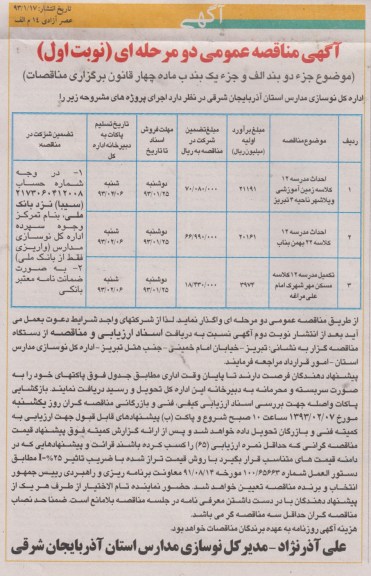 تاریخ انتشار: ۹۳/۱/۱۷
عصر آزادی ۱۴ م الف
آگهی
آگهی مناقصه عمومی دو مرحله ای (نوبت اول)
(موضوع جزء دو بند الف و جزء یک بند ب ماده چهار قانون برگزاری مناقصات)
اداره کل نوسازی مدارس استان آذربایجان شرقی در نظر دارد اجرای پروژه های مشروحه زیر را
ردیف | موضوع مناقصه | مبلغ برآورد اولیه (میلیون ریال) | مبلغ تضمین شرکت در مناقصه به ریال | مهلت فروش اسناد تا تاریخ | تاریخ تسلیم پاکات به دبیرخانه اداره کل | تضمین شرکت در مناقصه
۱ | احداث مدرسه ۱۲ کلاسه زمین آموزشی ویلاشهر ناحیه ۲ تبریز | ۲۱۱۹۱ | ۷۰/۰۸۰/۰۰۰ | دوشنبه ۹۳/۰۱/۲۵ | شنبه ۹۳/۰۲/۰۶
۲ | احداث مدرسه ۱۲ کلاسه ۲۲ بهمن بناب | ۲۰۱۶۱ | ۶۶/۹۹۰/۰۰۰ | دوشنبه ۹۳/۰۱/۲۵ | شنبه ۹۳/۰۲/۰۶
۳ | تکمیل مدرسه ۱۲ کلاسه مسکن مهر شهرک امام علی مراغه | ۳۹۷۳ | ۱۸/۴۳۰/۰۰۰ | دوشنبه ۹۳/۰۱/۲۵ | شنبه ۹۳/۰۲/۰۶
۱- در وجه
شماره حساب
۲۱۷۳۰۶۰۳۱۲۰۰۸
(سیبا) نزد بانک
ملی، بنام تمرکز
وجوه سپرده
اداره کل نوسازی
مدارس (واریزی
فقط از بانک ملی)
۲- به صورت
ضمانت نامه معتبر
بانکی
از طریق مناقصه عمومی دو مرحله ای واگذار نماید لذا از شرکتهای واجد شرایط دعوت بعمل می
آید بعد از انتشار نوبت دوم آگهی نسبت به دریافت اسناد ارزیابی و مناقصه از دستگاه
مناقصه گزار به نشانی: تبریز - خیابان امام خمینی - جنب هتل تبریز - اداره کل نوسازی مدارس
استان - امور قرارداد مراجعه فرمایند.
پیشنهاد دهندگان فرصت دارند تا پایان وقت اداری مطابق جدول فوق پاکتهای خود را به
صورت سربسته و محرمانه به دبیرخانه این اداره کل تحویل و رسید دریافت نمایند بازگشایی
پاکات واصله جهت بررسی اسناد ارزیابی کیفی، فنی و بازرگانی مناقصه گران روز یکشنبه
مورخ ۱۳۹۳/۰۲/۰۷ ساعت ۱۰ صبح شروع و پاکت (ب) پیشنهادهای قابل قبول جهت ارزیابی به
کمیته فنی و بازرگان تحویل داده خواهد شد و پس از ارائه گزارش کمیته فوق پیشنهاد قیمت
مناقصه گرانی که حداقل نمره ارزیابی (۶۵) را کسب کرده باشند قرائت و پیشنهادهایی که در
دامنه قیمت های متناسب قرار بگیرد با روش قیمت تراز شده با ضریب تاثیر ۲۵%=I مطابق
دستور العمل شماره ۱۰۰/۶۵۶۶۳ مورخه ۹۱/۰۸/۱۴ معاونت برنامه ریزی و راهبردی رییس جمهور
انتخاب و برنده مناقصه تعیین خواهد شد. حضور نماینده تام الاختیار از طرف هر یک از
پیشنهاد دهندگان با در دست داشتن معرفی نامه در جلسه مناقصه بلامانع است. ضمنا حد نصاب
مناقصه گران حداقل سه مناقصه گر می باشد.
هزینه آگهی روزنامه به عهده برندگان مناقصات خواهد بود.
علی آذرنژاد - مدیر کل نوسازی مدارس استان آذربایجان شرقی